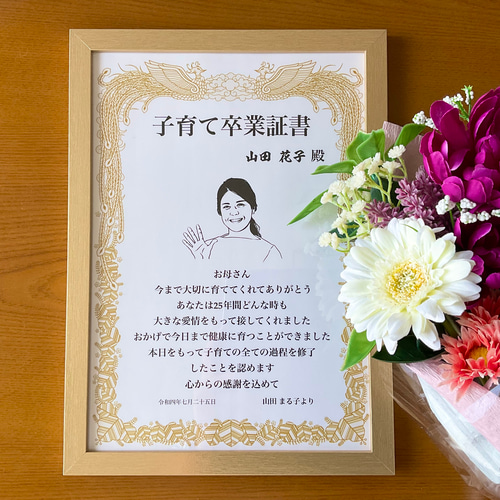 子育て卒業証書
山田 花子 殿
お母さん
今まで大切に育ててくれてありがとう
あなたは25年間どんな時も
大きな愛情をもって接してくれました
おかげで今日まで健康に育つことができました
本日をもって子育ての全ての過程を修了
したことを認めます
心からの感謝を込めて
令和四年七月二十五日 山田 まる子より